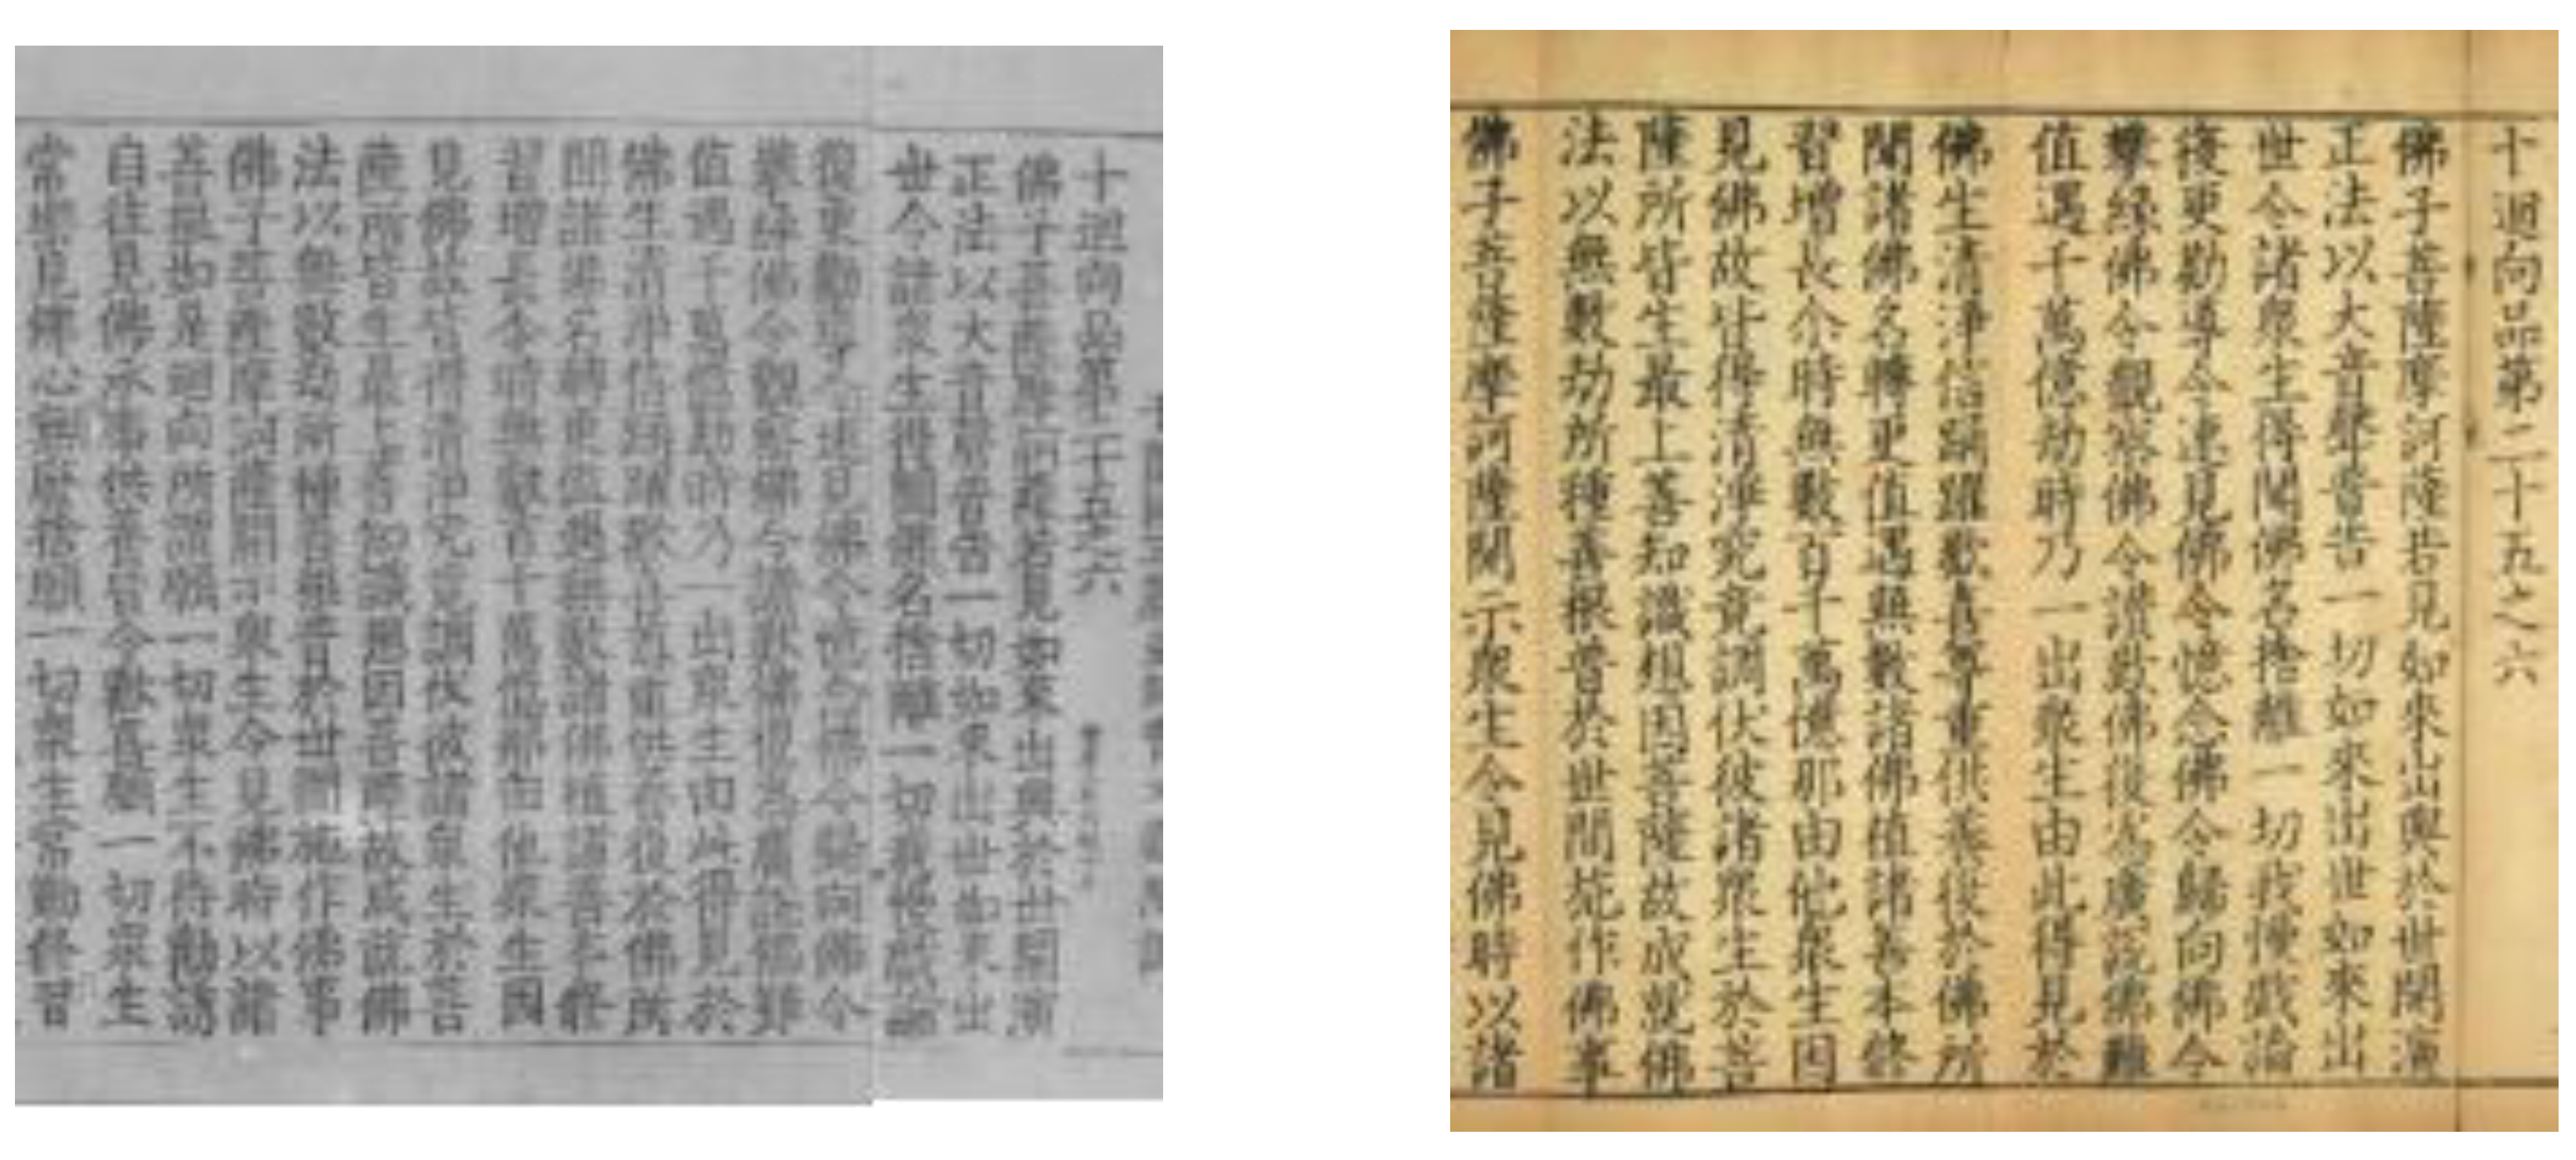 十迴向品第二十五之六
佛子菩薩摩訶薩若見如來出興於世開演
正法以大音聲普告一切如來出世如來出
世令諸衆生得聞佛名捨離一切我慢戲論
復更勸導令速見佛令憶念佛令歸向佛令
攀緣佛令觀察佛令讚歎佛復爲廣說佛難
值遇千萬億劫時乃一出衆生由此得見於
佛生清淨信踊躍歡喜尊重供養復於佛所
聞諸佛名轉更值遇無數諸佛植諸善本修
習增長尒時無數百千萬億那由他衆生因
見佛故皆得清淨究竟調伏彼諸衆生於菩
薩所皆生最上善知識想因菩薩故成就佛
法以無數劫所種善根普於世間施作佛事
佛子菩薩摩訶薩開示衆生令見佛時以諸
善根如是迴向所謂願一切衆生不待勸誘
自往見佛承事供養皆令歡喜願一切衆生
常樂見佛心無廢捨願一切衆生常勤修習
十迴向品第二十五之六
佛子菩薩摩訶薩若見如來出興於世開演
正法以大音聲普告一切如來出世如來出
世令諸衆生得聞佛名捨離一切我慢戲論
復更勸導令速見佛令憶念佛令歸向佛令
攀緣佛令觀察佛令讚歎佛復爲廣說佛難
值遇千萬億劫時乃一出衆生由此得見於
佛生清淨信踊躍歡喜尊重供養復於佛所
聞諸佛名轉更值遇無數諸佛植諸善本修
習增長尒時無數百千萬億那由他衆生因
見佛故皆得清淨究竟調伏彼諸衆生於菩
薩所皆生最上善知識想因菩薩故成就佛
法以無數劫所種善根普於世間施作佛事
佛子菩薩摩訶薩開示衆生令見佛時以諸